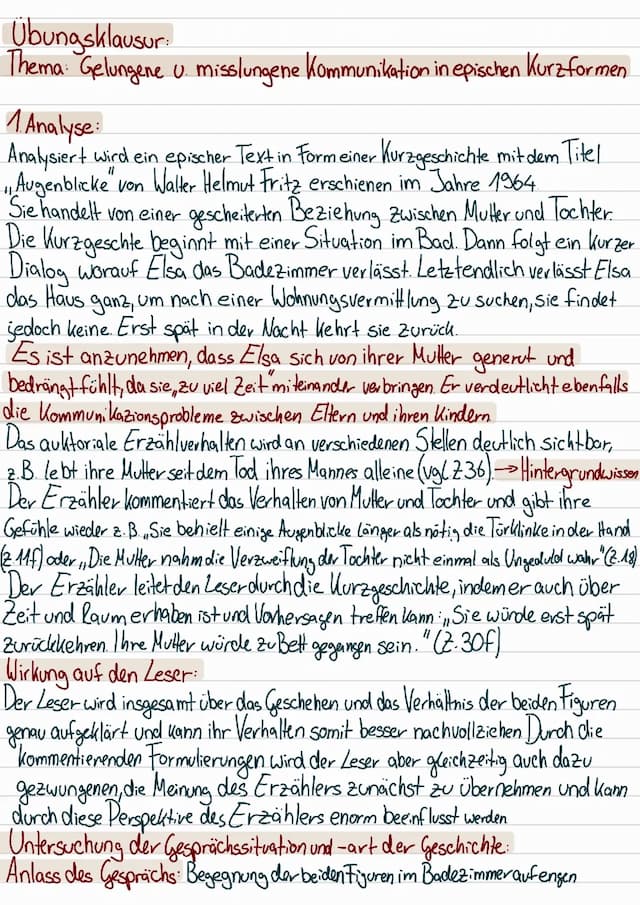 Übungsklausur:
Thema: Gelungene u. misslungene Kommunikation in epischen Kurzformen
1. Analyse:
Analysiert wird ein epischer Text in Form einer Kurzgeschichte mit dem Titel
„Augenblicke" von Walter Helmut Fritz erschienen im Jahre 1964.
Sie handelt von einer gescheiterten Beziehung zwischen Mutter und Tochter.
Die Kurzgeschte beginnt mit einer Situation im Bad. Dann folgt ein kurzer
Dialog worauf Elsa das Badezimmer verlässt. Letztendlich verlässt Elsa
das Haus ganz, um nach einer Wohnungsvermittlung zu suchen, sie findet
jedoch keine. Erst spät in der Nacht kehrt sie zurück.
Es ist anzunehmen, dass Elsa sich von ihrer Mutter genervt und
bedrängt fühlt, da sie „zu viel Zeit" miteinander verbringen. Er verdeutlicht ebenfalls
die Kommunikazionsprobleme zwischen Eltern und ihren Kindern
Das auktoriale Erzählverhalten wird an verschiedenen Stellen deutlich sichtbar,
z.B. lebt ihre Mutter seit dem Tod ihres Mannes alleine (vgl. Z.36). → Hintergrundwissen
Der Erzähler kommentiert das Verhalten von Mutter und Tochter und gibt ihre
Gefühle wieder z.B. „Sie behielt einige Augenblicke länger als nötig die Türklinke in der Hand
(Z.11f) oder „Die Mutter nahm die Verzweiflung der Tochter nicht einmal als Ungeduld wahr" (Z.18)
Der Erzähler leitet den Leser durch die Kurzgeschichte, indem er auch über
Zeit und Raum erhaben ist und Vorhersagen treffen kann: „Sie würde erst spät
zurückkehren. Ihre Mutter würde zu Bett gegangen sein." (Z.30f)
Wirkung auf den Leser:
Der Leser wird insgesamt über das Geschehen und das Verhältnis der beiden Figuren
genau aufgeklärt und kann ihr Verhalten somit besser nachvollziehen Durch die
kommentierenden Formulierungen wird der Leser aber gleichzeitig auch dazu
gezwungenen, die Meinung des Erzählers zunächst zu übernehmen und kann
durch diese Perspektive des Erzählers enorm beeinflusst werden
Untersuchung der Gesprächssituation und -art der Geschichte:
Anlass des Gesprächs: Begegnung der beiden Figuren im Badezimmer auf engen